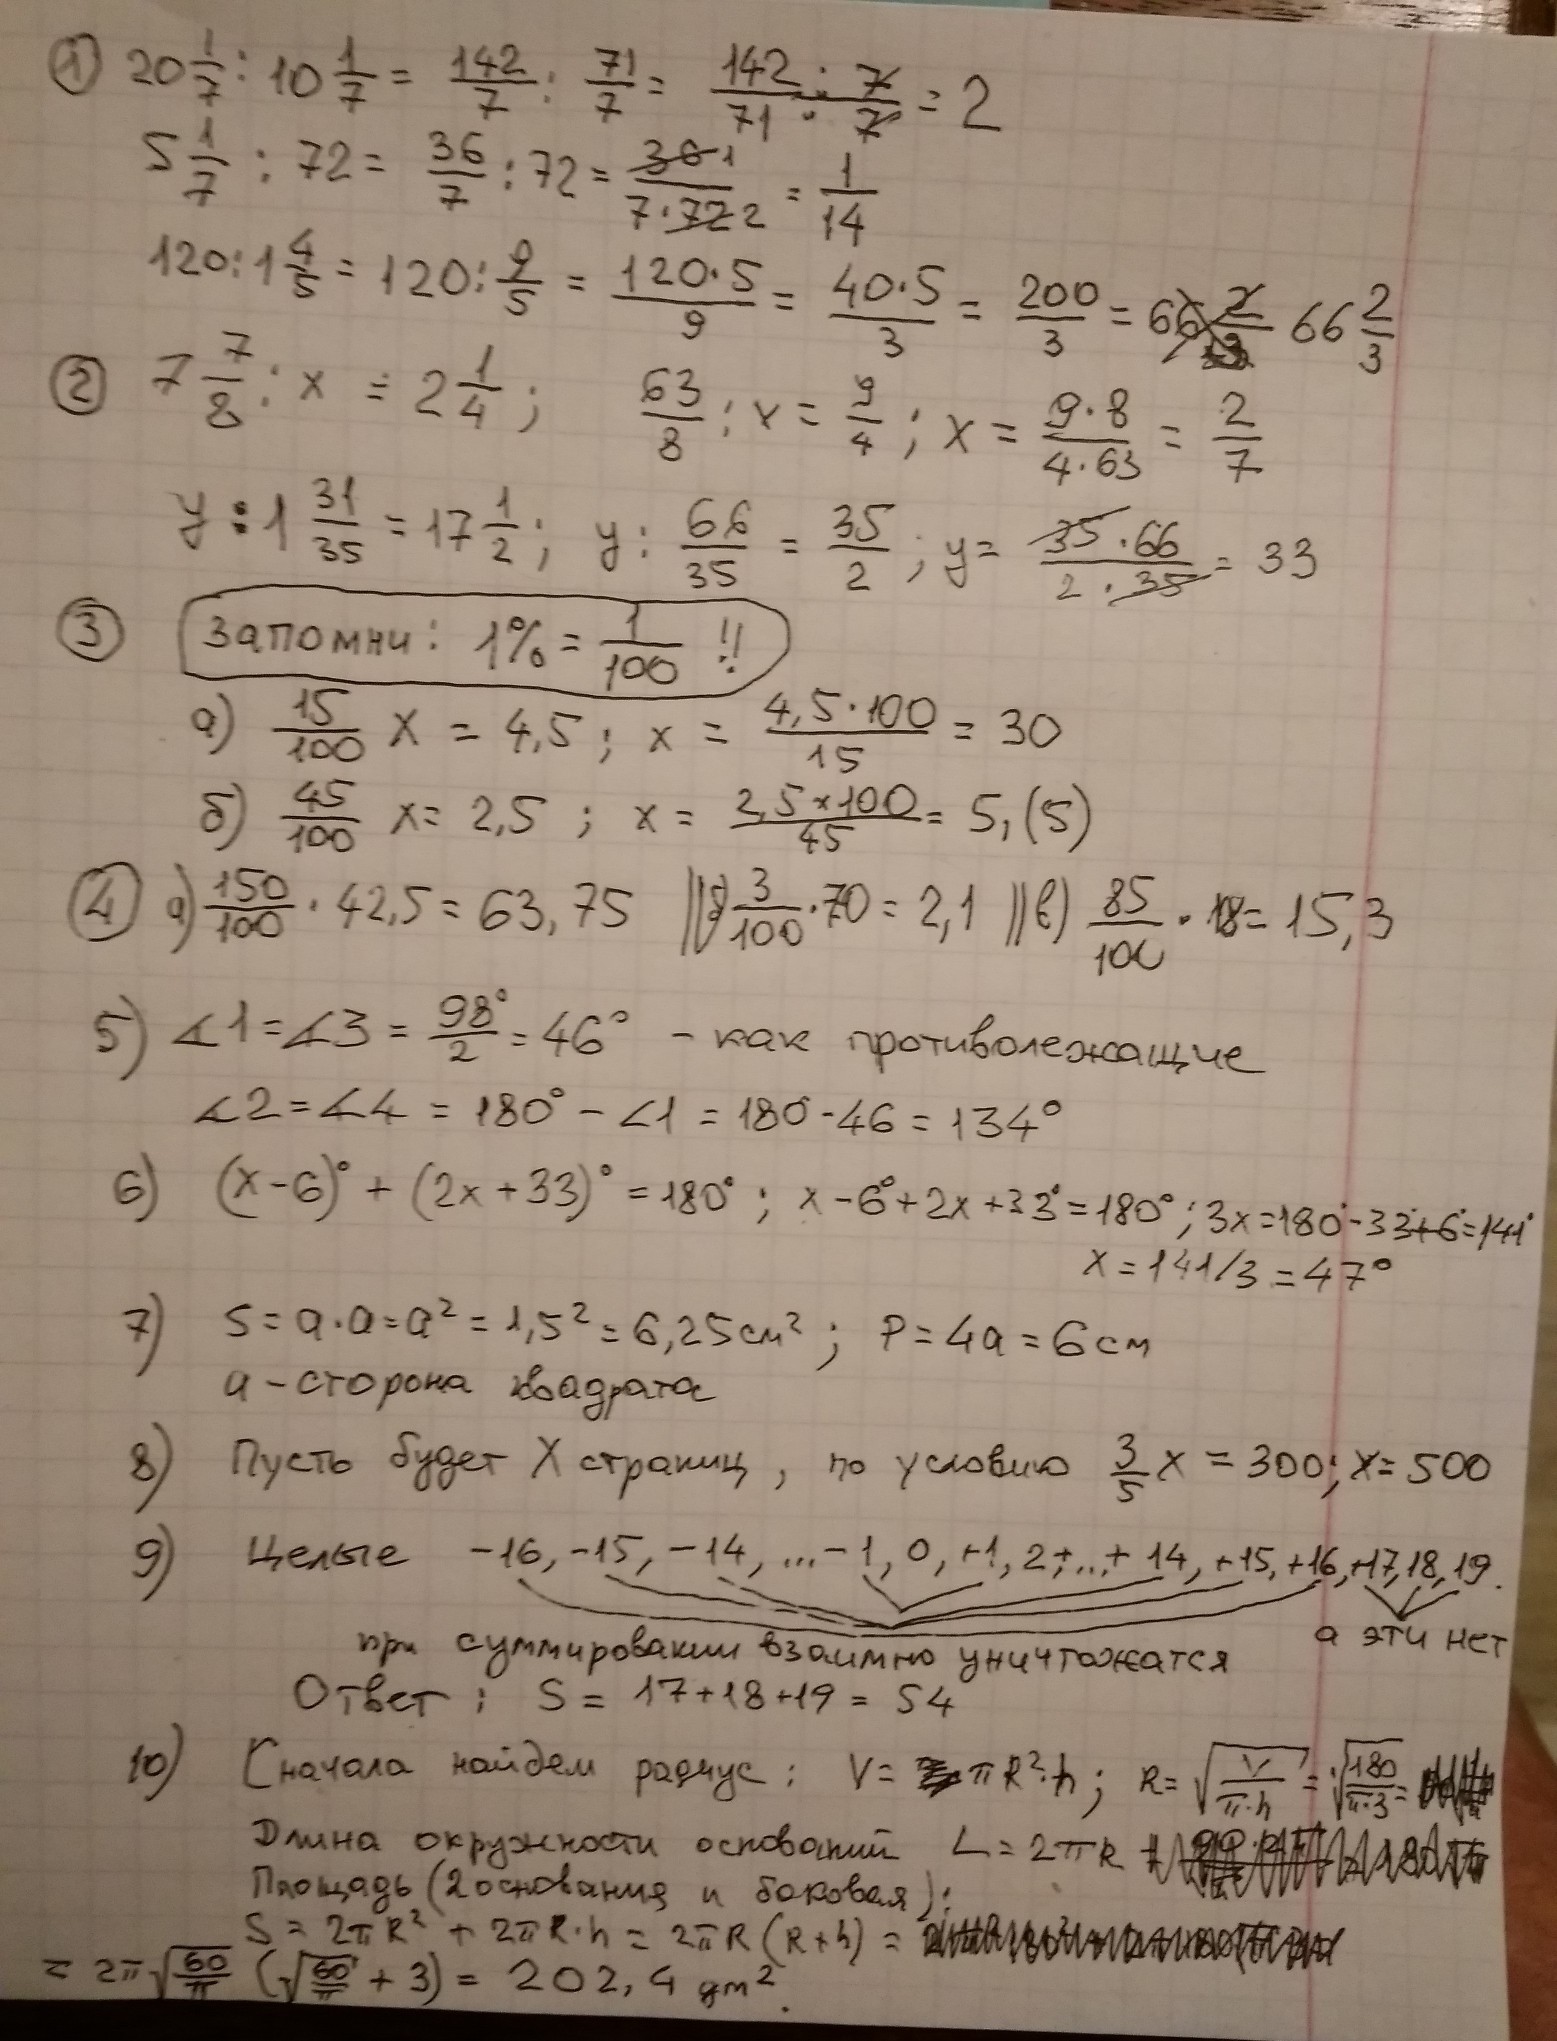 1) 20 1/7 : 10 1/7 = 142/7 : 71/7 = 142/71 · 7/7 = 2
5 1/7 : 72 = 36/7 : 72 = 36 1/7·72 2 = 1/14
120 : 1 4/5 = 120 : 9/5 = 120·5/9 = 40·5/3 = 200/3 = 66 2/3
2) 7 7/8 : x = 2 1/4 ; 63/8 : x = 9/4 ; x = 9·8/4·63 = 2/7
y : 1 31/35 = 17 1/2 ; y : 66/35 = 35/2 ; y = 35·66/2·35 = 33
3) Запомни: 1% = 1/100 !!
а) 15/100 x = 4,5 ; x = 4,5·100/15 = 30
б) 45/100 x = 2,5 ; x = 2,5×100/45 = 5,(5)
4) а) 150/100 · 42,5 = 63,75 || б) 3/100 · 70 = 2,1 || в) 85/100 · 18 = 15,3
5) ∠1 = ∠3 = 98°/2 = 46° - как противолежащие
∠2 = ∠4 = 180° - ∠1 = 180° - 46 = 134°
6) (x-6)° + (2x+33)° = 180° ; x-6°+2x+33° = 180° ; 3x = 180°-33°+6° = 141°
x = 141/3 = 47°
7) S = a·a = a² = 1,5² = 6,25 см² ; P = 4a = 6 см
a - сторона квадрата
8) Пусть будет X страниц, по условию 3/5 x = 300 ; x = 500
9) Целые -16, -15, -14, ... -1, 0, +1, 2+, ..+ 14, +15, +16, +17, 18, 19.
при суммировании взаимно уничтожатся а эти нет
Ответ: S = 17+18+19 = 54
10) Сначала найдем радиус: V = πR²·h ; R = √(V/π·h) = √(180/π·3) =
Длина окружности оснований L = 2πR
Площадь (2 основания и боковая):
S = 2πR² + 2πR·h = 2πR(R+h) =
= 2π√(60/π) (√(60/π) + 3) = 202,4 дм².